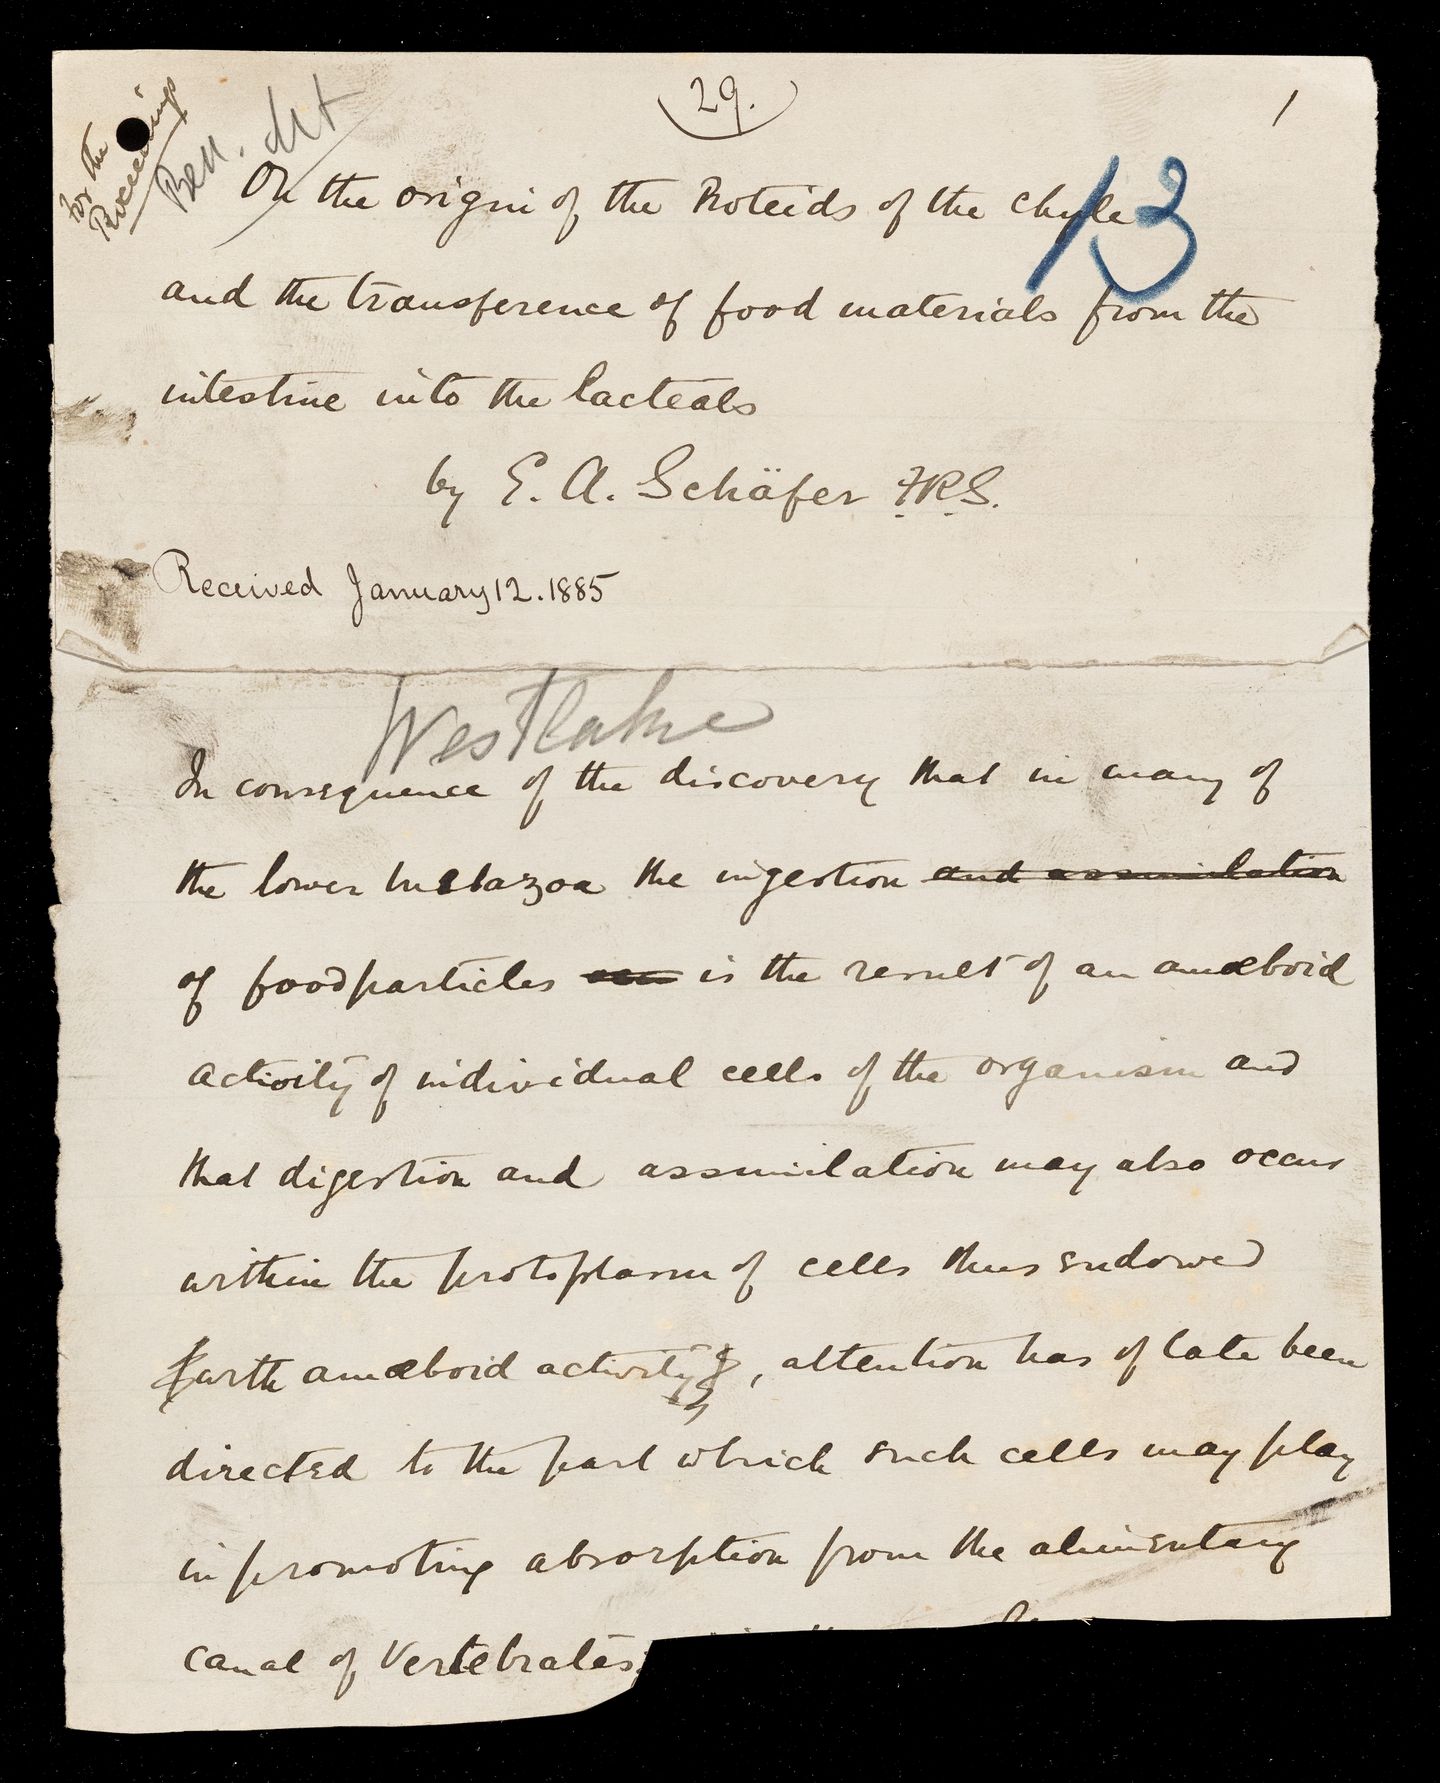 29.
1
For the
Proceedings
13
On the origin of the Proteids of the Chyle
and the transference of food materials from the
intestine into the lacteals
by E. A. Schäfer F.R.S.
Received January 12. 1885
Westlake
In consequence of the discovery that in many of
the lower metazoa the ingestion and assimilation
of food particles is the result of an amœboid
activity of individual cells of the organism and
that digestion and assimilation may also occur
within the protoplasm of cells thus endowed
with amœboid activity, attention has of late been
directed to the part which such cells may play
in promoting absorption from the alimentary
canal of Vertebrates